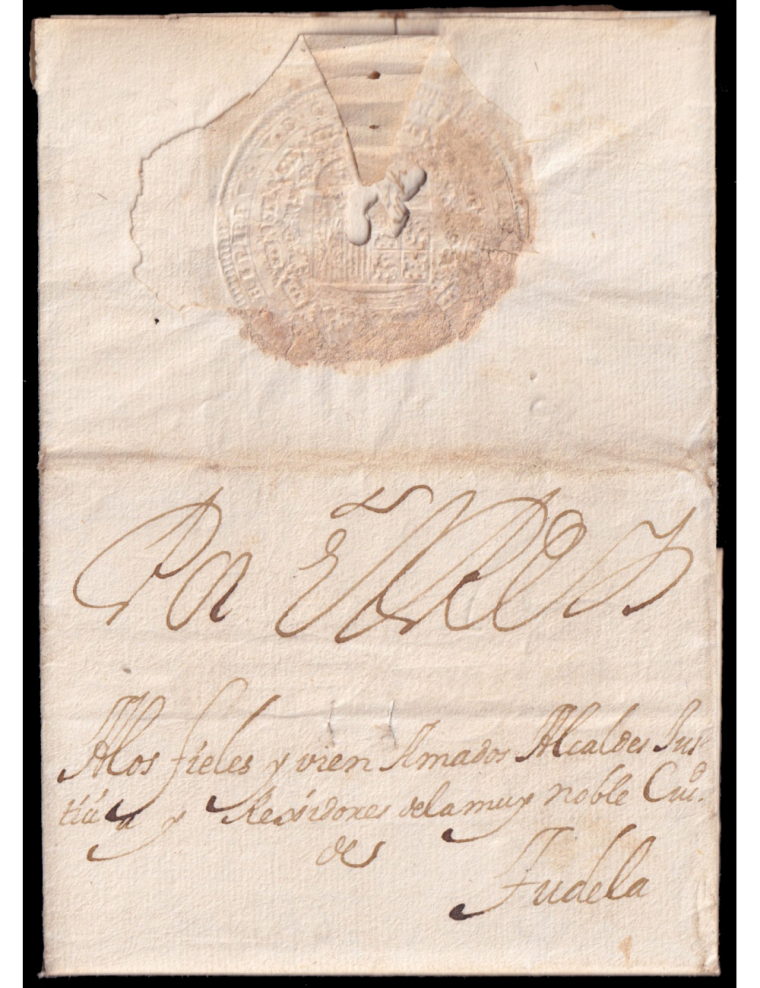 Por El Rey
Alos fieles y vien Amados Alcaldes Jus
tiçia y Rexidores delamuy noble Ciud.
de
Tudela